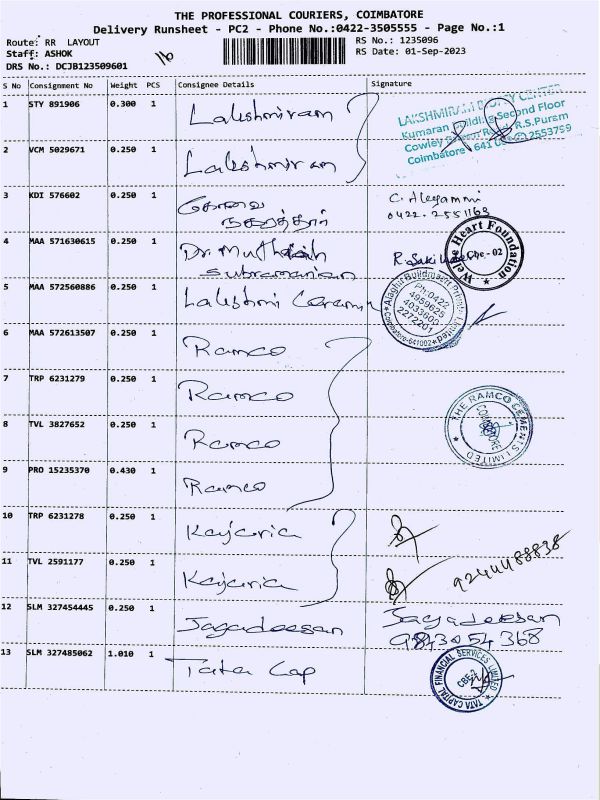 THE PROFESSIONAL COURIERS, COIMBATORE
Delivery Runsheet - PC2 - Phone No.:0422-3505555 - Page No.:1
Route: RR LAYOUT
Staff: ASHOK
DRS No.: DCJB123509601
RS No.: 1235096
RS Date: 01-Sep-2023
S No Consignment No Weight PCS Consignee Details Signature
1 STY 891906 0.300 1 Lakshmiram
LAKSHMIRAM
Kumaran Building Second Floor
Cowley Brown Road, R.S.Puram
Coimbatore - 641 002 2553799
2 VCM 5029671 0.250 1 Lakshmiram
3 KDI 576602 0.250 1 கோவை
நகரத்தார்
C. Alagammi
0422-2551163
4 MAA 571630615 0.250 1 Dr. Muthaiah
Subramanian
R. Sakila
Heart Foundation
Cbe-02
5 MAA 572560886 0.250 1 Lakshmi Ceramic
Alagha Buildmaert Private Limited
Ph:0422
4959625
4033609
2272201
Coimbatore-641002
6 MAA 572613507 0.250 1 Ramco
7 TRP 6231279 0.250 1 Ramco
8 TVL 3827652 0.250 1 Ramco
THE RAMCO CEMENTS LIMITED
COIMBATORE
9 PRO 15235370 0.430 1 Ramco
10 TRP 6231278 0.250 1 Kajaria
11 TVL 2591177 0.250 1 Kajaria
9244488838
12 SLM 327454445 0.250 1 Jagadeesan
Jagadeesan
9843054368
13 SLM 327485062 1.010 1 Tata Cap
TATA CAPITAL FINANCIAL SERVICES LIMITED
CBE2